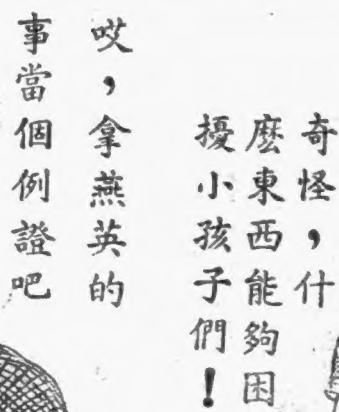 奇怪，什
麽東西能夠困
擾小孩子們！
哎，拿燕英的
事當個例證吧